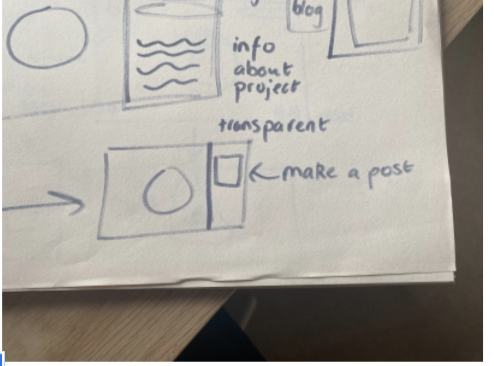 blog
info
about
project
transparent
make a post